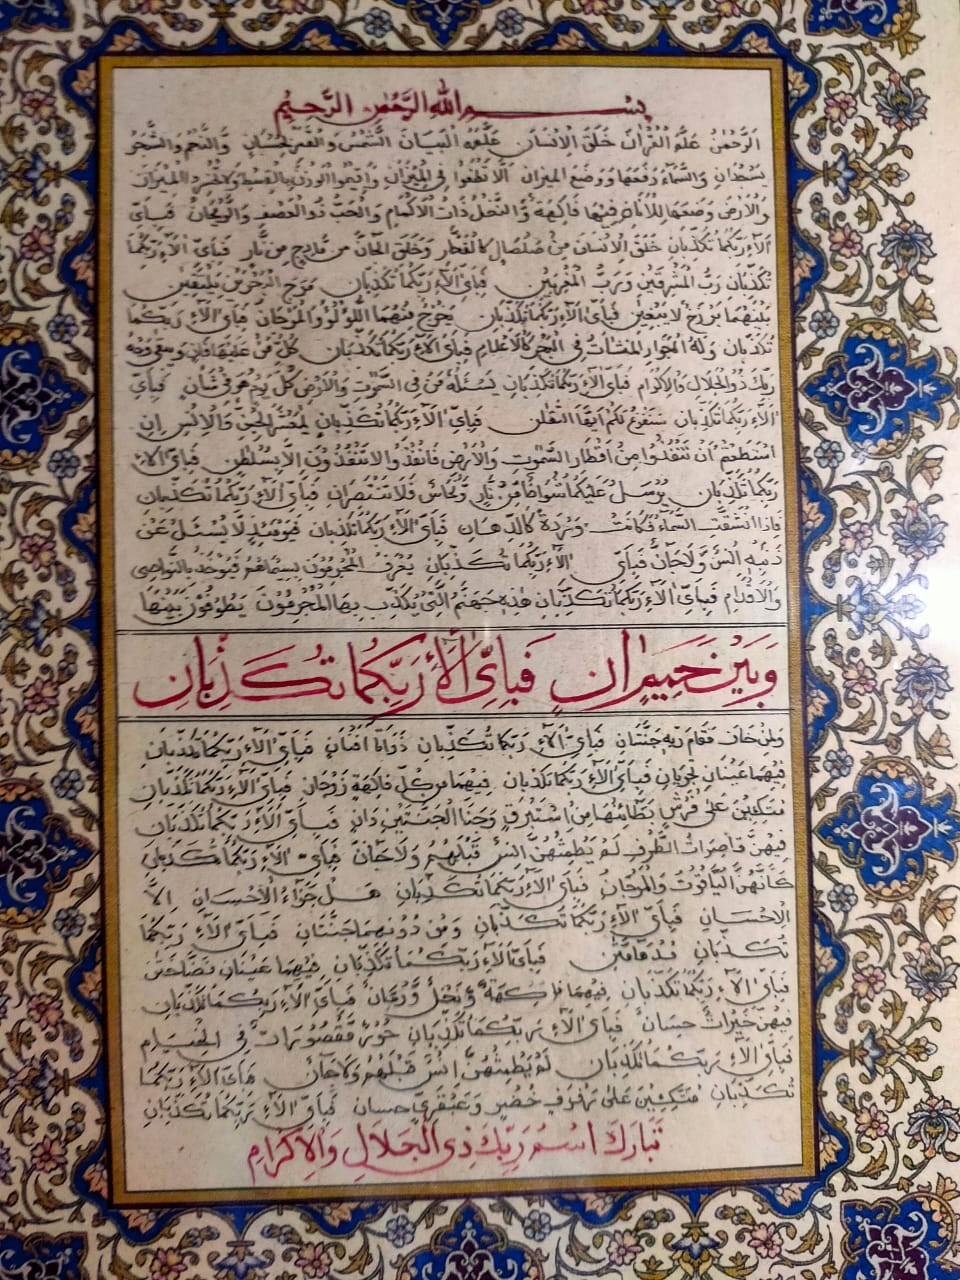 بِسْمِ اللهِ الرَّحْمٰنِ الرَّحِيْمِ
اَلرَّحْمٰنُ عَلَّمَ الْقُرْاٰنَ خَلَقَ الْاِنْسَانَ عَلَّمَهُ الْبَيَانَ اَلشَّمْسُ وَالْقَمَرُ بِحُسْبَانٍ وَّالنَّجْمُ وَالشَّجَرُ
يَسْجُدَانِ وَالسَّمَآءَ رَفَعَهَا وَوَضَعَ الْمِيْزَانَ اَلَّا تَطْغَوْا فِي الْمِيْزَانِ وَاَقِيْمُوا الْوَزْنَ بِالْقِسْطِ وَلَا تُخْسِرُوا الْمِيْزَانَ
وَالْاَرْضَ وَضَعَهَا لِلْاَنَامِ فِيْهَا فَاكِهَةٌ وَّالنَّخْلُ ذَاتُ الْاَكْمَامِ وَالْحَبُّ ذُو الْعَصْفِ وَالرَّيْحَانُ فَبِاَيِّ
اٰلَآءِ رَبِّكُمَا تُكَذِّبَانِ خَلَقَ الْاِنْسَانَ مِنْ صَلْصَالٍ كَالْفَخَّارِ وَخَلَقَ الْجَانَّ مِنْ مَّارِجٍ مِّنْ نَّارٍ فَبِاَيِّ اٰلَآءِ رَبِّكُمَا
تُكَذِّبَانِ رَبُّ الْمَشْرِقَيْنِ وَرَبُّ الْمَغْرِبَيْنِ فَبِاَيِّ اٰلَآءِ رَبِّكُمَا تُكَذِّبَانِ مَرَجَ الْبَحْرَيْنِ يَلْتَقِيٰنِ
بَيْنَهُمَا بَرْزَخٌ لَّا يَبْغِيٰنِ فَبِاَيِّ اٰلَآءِ رَبِّكُمَا تُكَذِّبَانِ يَخْرُجُ مِنْهُمَا اللُّؤْلُؤُ وَالْمَرْجَانُ فَبِاَيِّ اٰلَآءِ رَبِّكُمَا
تُكَذِّبَانِ وَلَهُ الْجَوَارِ الْمُنْشَاٰتُ فِي الْبَحْرِ كَالْاَعْلَامِ فَبِاَيِّ اٰلَآءِ رَبِّكُمَا تُكَذِّبَانِ كُلُّ مَنْ عَلَيْهَا فَانٍ وَّيَبْقٰى وَجْهُ
رَبِّكَ ذُو الْجَلَالِ وَالْاِكْرَامِ فَبِاَيِّ اٰلَآءِ رَبِّكُمَا تُكَذِّبَانِ يَسْئَلُهُ مَنْ فِي السَّمٰوٰتِ وَالْاَرْضِ كُلَّ يَوْمٍ هُوَ فِيْ شَأْنٍ فَبِاَيِّ
اٰلَآءِ رَبِّكُمَا تُكَذِّبَانِ سَنَفْرُغُ لَكُمْ اَيُّهَ الثَّقَلٰنِ فَبِاَيِّ اٰلَآءِ رَبِّكُمَا تُكَذِّبَانِ يٰمَعْشَرَ الْجِنِّ وَالْاِنْسِ اِنِ
اسْتَطَعْتُمْ اَنْ تَنْفُذُوْا مِنْ اَقْطَارِ السَّمٰوٰتِ وَالْاَرْضِ فَانْفُذُوْا لَا تَنْفُذُوْنَ اِلَّا بِسُلْطٰنٍ فَبِاَيِّ اٰلَآءِ
رَبِّكُمَا تُكَذِّبَانِ يُرْسَلُ عَلَيْكُمَا شُوَاظٌ مِّنْ نَّارٍ وَّنُحَاسٌ فَلَا تَنْتَصِرَانِ فَبِاَيِّ اٰلَآءِ رَبِّكُمَا تُكَذِّبَانِ
فَاِذَا انْشَقَّتِ السَّمَآءُ فَكَانَتْ وَرْدَةً كَالدِّهَانِ فَبِاَيِّ اٰلَآءِ رَبِّكُمَا تُكَذِّبَانِ فَيَوْمَئِذٍ لَّا يُسْئَلُ عَنْ
ذَنْبِهٖ اِنْسٌ وَّلَا جَانٌّ فَبِاَيِّ اٰلَآءِ رَبِّكُمَا تُكَذِّبَانِ يُعْرَفُ الْمُجْرِمُوْنَ بِسِيْمٰهُمْ فَيُؤْخَذُ بِالنَّوَاصِيْ
وَالْاَقْدَامِ فَبِاَيِّ اٰلَآءِ رَبِّكُمَا تُكَذِّبَانِ هٰذِهٖ جَهَنَّمُ الَّتِيْ يُكَذِّبُ بِهَا الْمُجْرِمُوْنَ يَطُوْفُوْنَ بَيْنَهَا
وَبَيْنَ حَمِيْمٍ اٰنٍ فَبِاَيِّ اٰلَآءِ رَبِّكُمَا تُكَذِّبَانِ
وَلِمَنْ خَافَ مَقَامَ رَبِّهٖ جَنَّتَانِ فَبِاَيِّ اٰلَآءِ رَبِّكُمَا تُكَذِّبَانِ ذَوَاتَا اَفْنَانٍ فَبِاَيِّ اٰلَآءِ رَبِّكُمَا تُكَذِّبَانِ
فِيْهِمَا عَيْنَانِ تَجْرِيَانِ فَبِاَيِّ اٰلَآءِ رَبِّكُمَا تُكَذِّبَانِ فِيْهِمَا مِنْ كُلِّ فَاكِهَةٍ زَوْجَانِ فَبِاَيِّ اٰلَآءِ رَبِّكُمَا تُكَذِّبَانِ
مُتَّكِئِيْنَ عَلٰى فُرُشٍ بَطَآئِنُهَا مِنْ اِسْتَبْرَقٍ وَجَنَا الْجَنَّتَيْنِ دَانٍ فَبِاَيِّ اٰلَآءِ رَبِّكُمَا تُكَذِّبَانِ
فِيْهِنَّ قَاصِرَاتُ الطَّرْفِ لَمْ يَطْمِثْهُنَّ اِنْسٌ قَبْلَهُمْ وَلَا جَانٌّ فَبِاَيِّ اٰلَآءِ رَبِّكُمَا تُكَذِّبَانِ
كَاَنَّهُنَّ الْيَاقُوْتُ وَالْمَرْجَانُ فَبِاَيِّ اٰلَآءِ رَبِّكُمَا تُكَذِّبَانِ هَلْ جَزَآءُ الْاِحْسَانِ اِلَّا
الْاِحْسَانُ فَبِاَيِّ اٰلَآءِ رَبِّكُمَا تُكَذِّبَانِ وَمِنْ دُوْنِهِمَا جَنَّتَانِ فَبِاَيِّ اٰلَآءِ رَبِّكُمَا
تُكَذِّبَانِ مُدْهَآمَّتٰنِ فَبِاَيِّ اٰلَآءِ رَبِّكُمَا تُكَذِّبَانِ فِيْهِمَا عَيْنَانِ نَضَّاخَتٰنِ
فَبِاَيِّ اٰلَآءِ رَبِّكُمَا تُكَذِّبَانِ فِيْهِمَا فَاكِهَةٌ وَّنَخْلٌ وَّرُمَّانٌ فَبِاَيِّ اٰلَآءِ رَبِّكُمَا تُكَذِّبَانِ
فِيْهِنَّ خَيْرَاتٌ حِسَانٌ فَبِاَيِّ اٰلَآءِ رَبِّكُمَا تُكَذِّبَانِ حُوْرٌ مَّقْصُوْرَاتٌ فِي الْخِيَامِ
فَبِاَيِّ اٰلَآءِ رَبِّكُمَا تُكَذِّبَانِ لَمْ يَطْمِثْهُنَّ اِنْسٌ قَبْلَهُمْ وَلَا جَانٌّ فَبِاَيِّ اٰلَآءِ رَبِّكُمَا
تُكَذِّبَانِ مُتَّكِئِيْنَ عَلٰى رَفْرَفٍ خُضْرٍ وَّعَبْقَرِيٍّ حِسَانٍ فَبِاَيِّ اٰلَآءِ رَبِّكُمَا تُكَذِّبَانِ
تَبَارَكَ اسْمُ رَبِّكَ ذِي الْجَلَالِ وَالْاِكْرَامِ